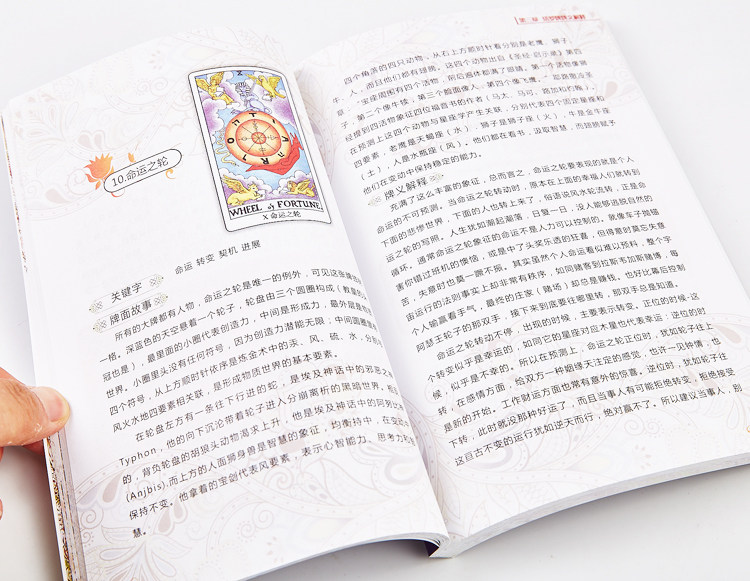 10.命运之轮
X
WHEEL of FORTUNE
X 命运之轮
命运 转变 契机 进展
关键字
牌面故事
所有的大牌都有人物，命运之轮是唯一的例外，可见这张牌
一格。深蓝色的天空悬着一个轮子，轮盘由三个圆圈构成（教皇的
冠也是），最里面的小圈代表创造力，中间是形成力，最外层是物质
世界。小圈里头没有任何符号，因为创造力潜能无限；中间圆圈里
四个符号，从上方顺时针依序是炼金术中的汞、风、硫、水，分别
风火水地四要素相关联，是形成物质世界的基本要素。
在轮盘左方有一条往下行进的蛇，是埃及神话中的邪恶之神
Typhon，他的向下沉沦带着轮子进入分崩离析的黑暗世界。相
的，背负轮盘的胡狼头动物渴求上升，他是埃及神话中的阿列比
(Anjbis),而上方的人面狮身兽是智慧的象征，均衡持中，在变动
保持不变。他拿着的宝剑代表风要素，表示心智能力、思考力和
慧。
四个角落的四只动物，从右上方顺时针看分别是老鹰、狮子、
牛、人，而且他们都有翅膀。这四个动物出自《圣经·启示录》第四
章，“宝座周围有四个活物，前后遍体都满了眼睛。第一个活物像狮
子，第二个像牛犊，第三个脸面像人，第四个像飞鹰，”耶路撒冷圣
经提到四活物象征四位福音书的作者（马太、马可、路加和约翰）。
在预测上这四个动物与星座学产生关联，分别代表四个固定星座和
四要素，老鹰是天蝎座（水），狮子是狮子座（火），牛是金牛座
（土），人是水瓶座（风）。他们都在看书，汲取智慧，而翅膀赋予
他们在变动中保持稳定的能力。
牌义解释
充满了这么丰富的象征，总而言之，命运之轮要表现的就是个人
命运的不可预测。当命运之轮转动时，原本在上面的幸福人们就转到
下面的悲惨世界，下面的人也转上来了，俗语说风水轮流转，正是命
运之轮的写照。人生犹如潮起潮落，日复一日，没人能够逃脱自然的
循环。通常命运之轮象征的命运不是人力可以控制的，就像车子抛锚
害你错过班机的懊恼，或是中了头奖乐透的狂喜，但得意时莫忘失意
苦，失意时也莫一蹶不振。其实虽然个人命运看似难以预料，整个宇
宙运行的法则事实上却非常有秩序，如同赌客到拉斯韦加斯赌博，每
个人输赢看手气，最终的庄家（赌场）却总是赚钱。也好比幕后控制
阿慧王轮子的那双手，接下来到底要往哪里转，那双手总是知道。
命运之轮转动不停，出现的时候，主要表示转变。正位的时候，这
个转变似乎是幸运的，如同它的星座对应木星也代表幸运；逆位的时
候，似乎是不幸的。所以在预测上，命运之轮正位时，犹如轮子往上
转，在感情方面，给双方一种姻缘天注定的感觉，也许一见钟情，也
是新的开始。工作财运方面也常有意外的惊喜。逆位时，犹如轮子往
下转，此时就没那种好运了，而且当事人有可能拒绝转变。拒绝接受
这亘古不变的运行犹如逆天而行，绝对赢不了。所以建议当事人，别